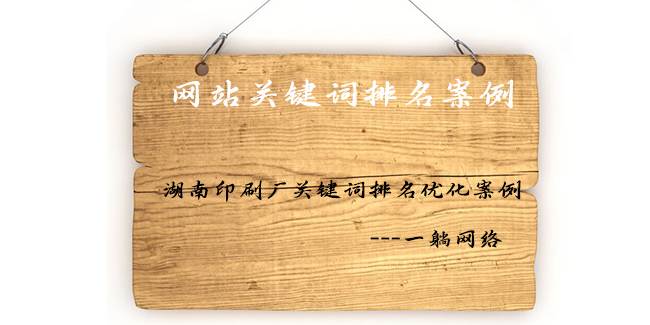 网站关键词排名案例
湖南印刷厂关键词排名优化案例
---一躺网络